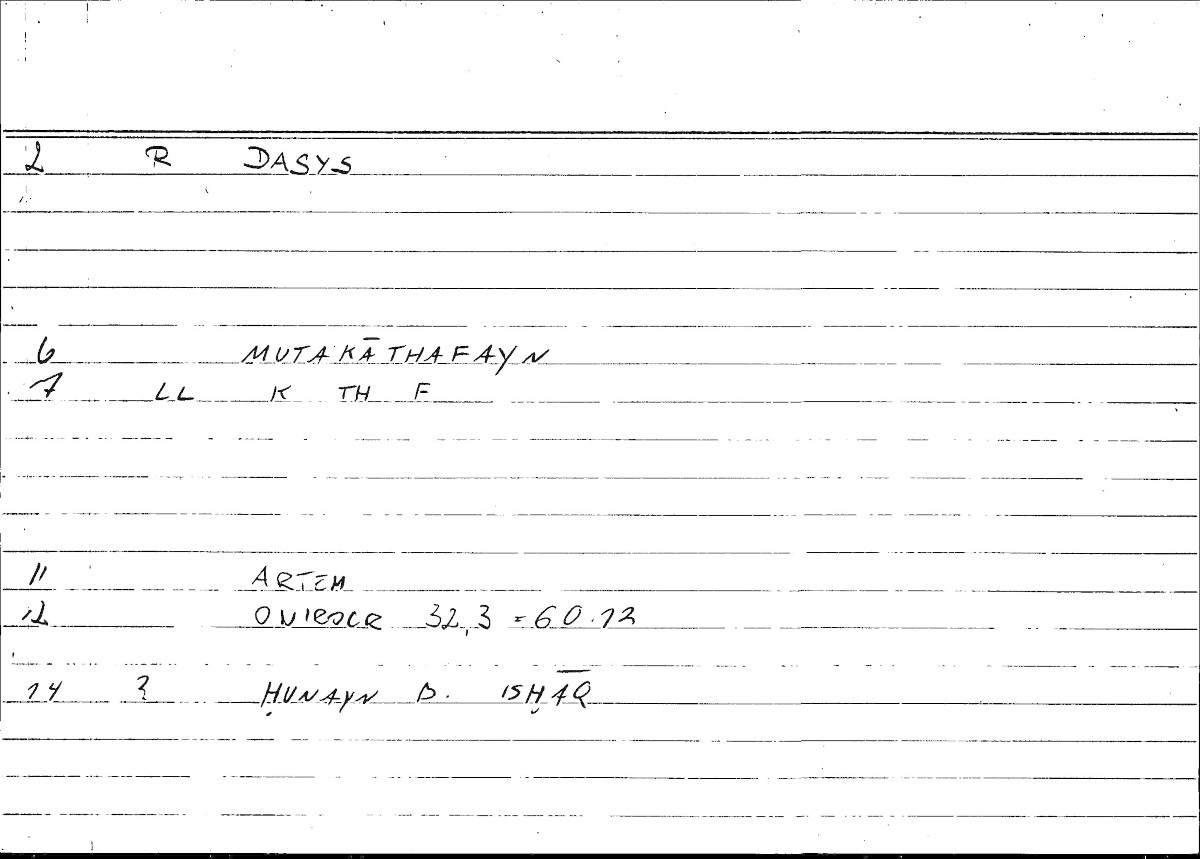 2 R DASYS
6 MUTAKĀTHAFAYN
7 LL K TH F
11 ARTEM
12 ONIROCR 32,3 = 60.12
14 2 ḤUNAYN B. ISḤĀQ